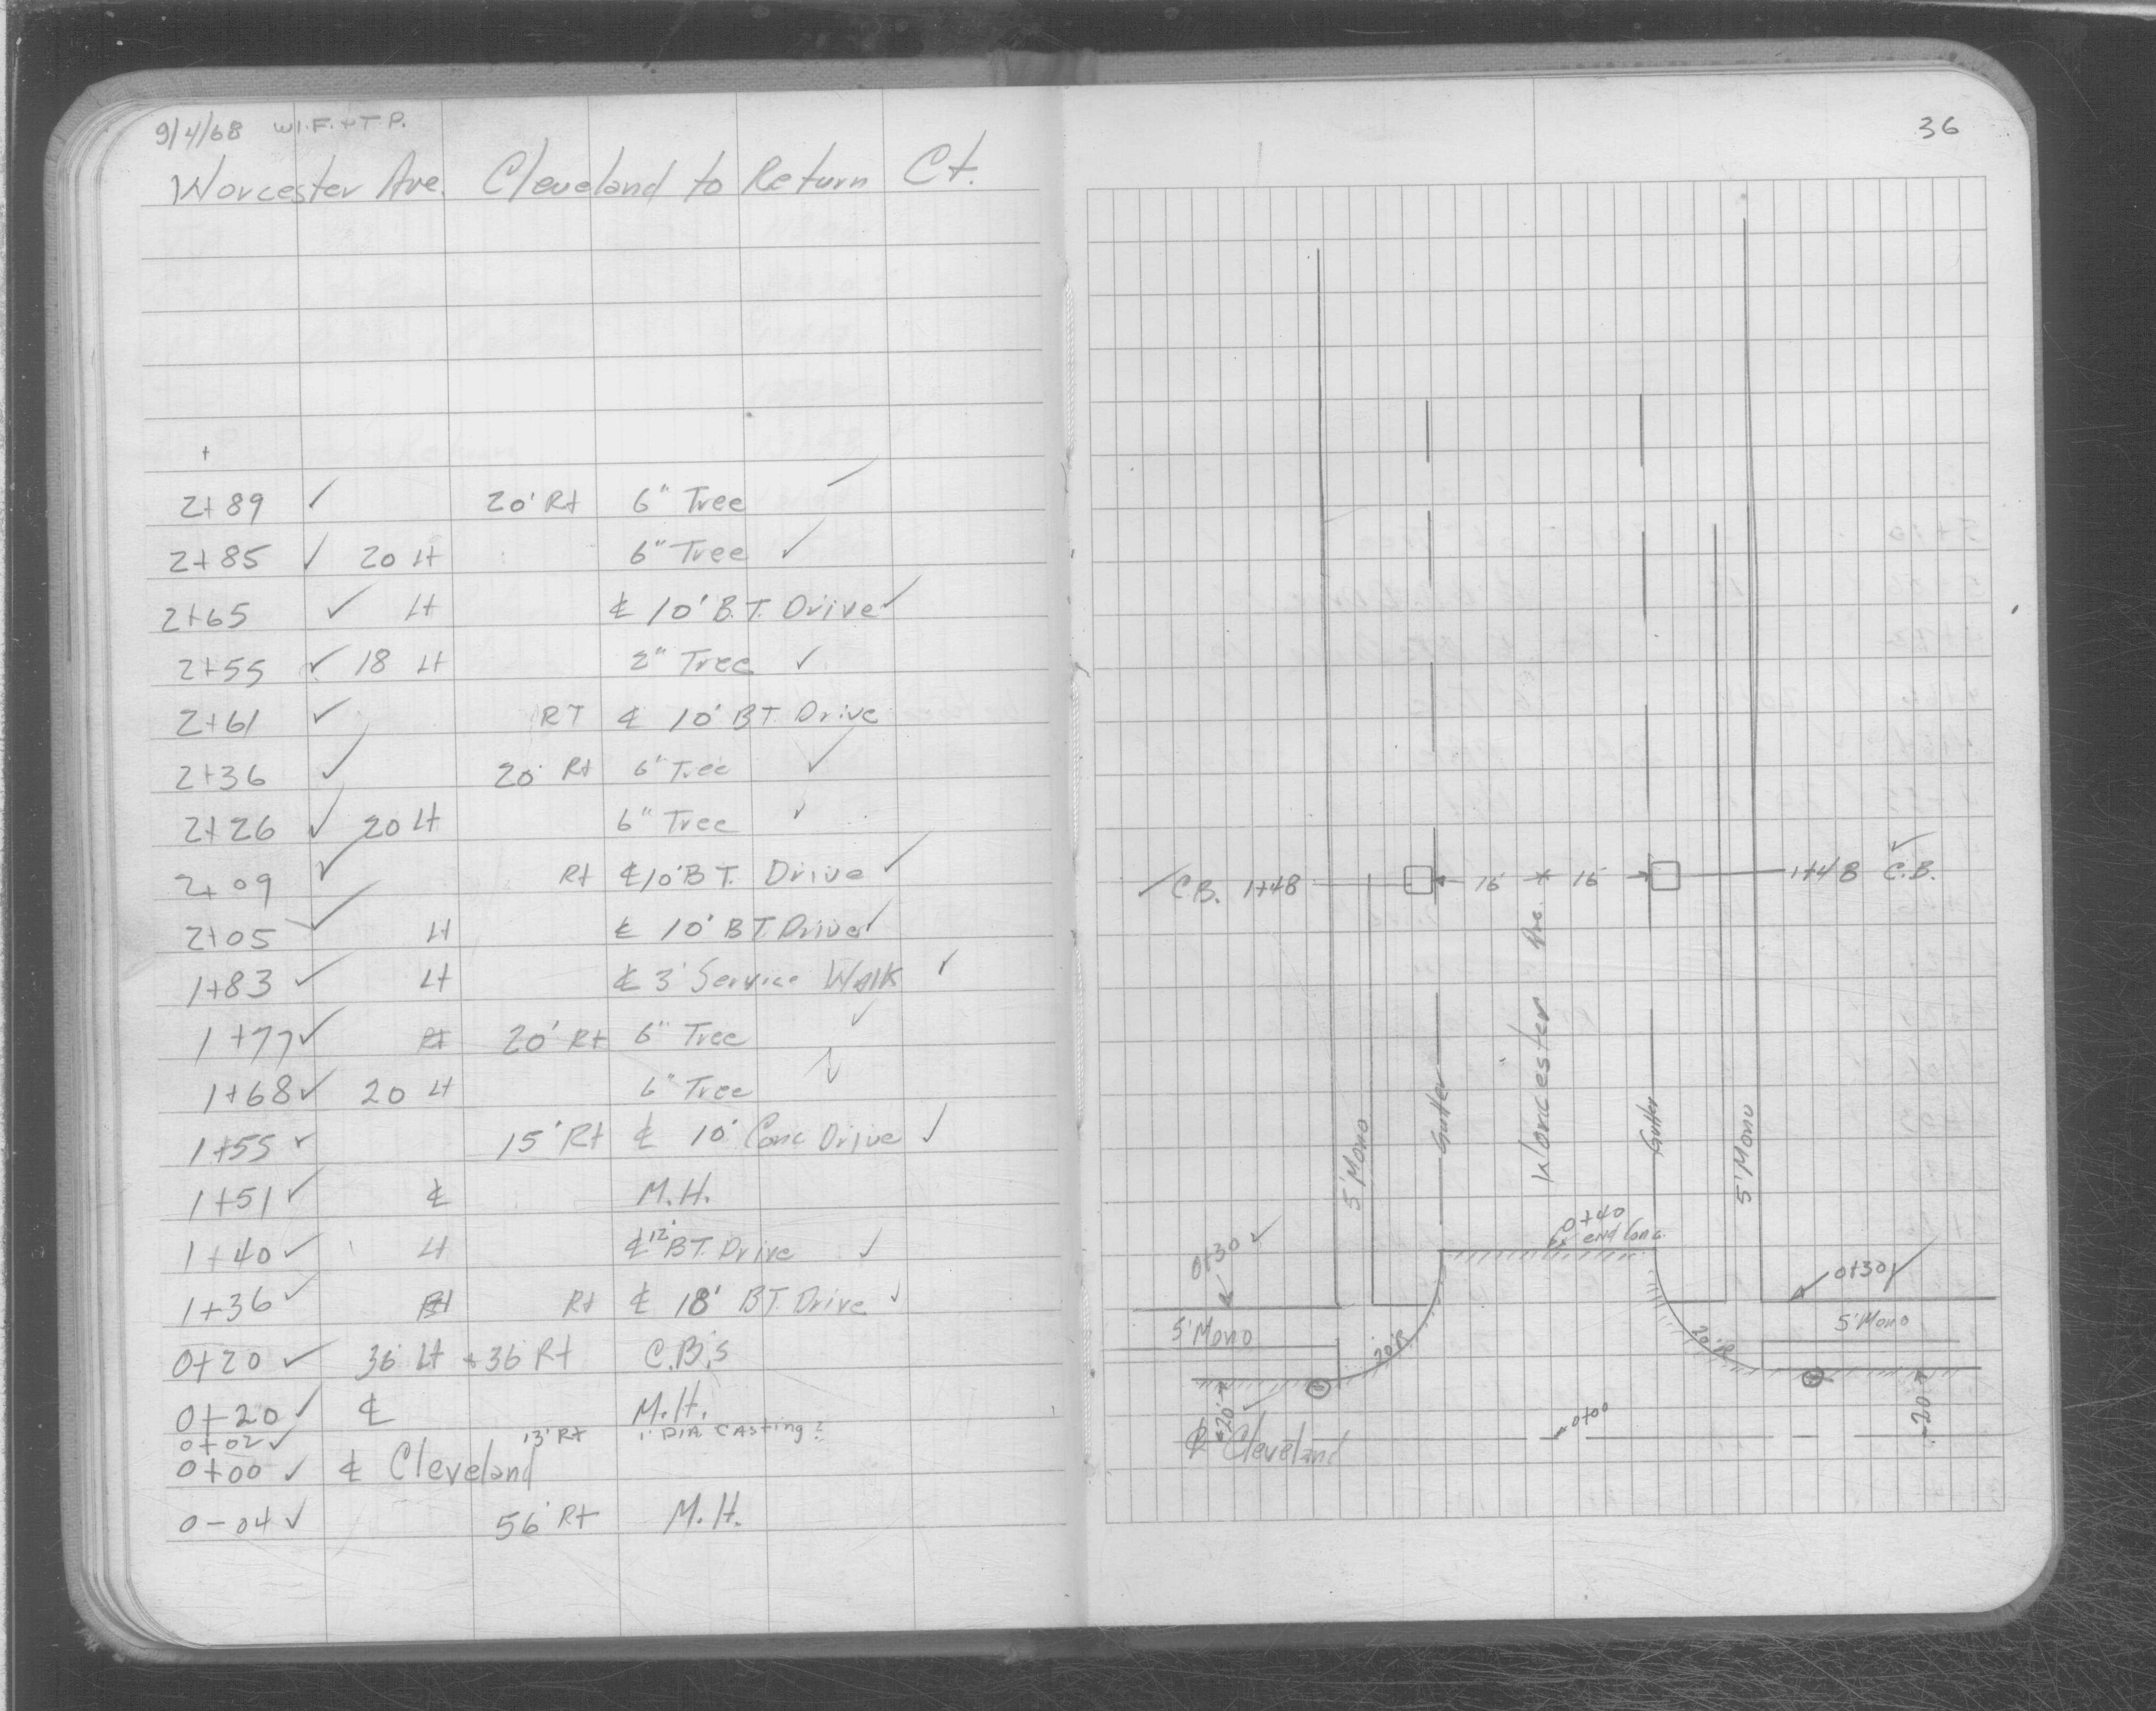 9/4/68 W.I.F. + T.P.
Worcester Ave. Cleveland to Return Ct.
2+89 ✓ 20' Rt 6" Tree ✓
2+85 ✓ 20 Lt 6" Tree ✓
2+65 ✓ Lt ℄ 10' B.T. Drive ✓
2+55 ✓ 18 Lt 2" Tree ✓
2+61 ✓ RT ℄ 10' BT. Drive
2+36 ✓ 20' Rt 6" Tree ✓
2+26 ✓ 20 Lt 6" Tree ✓
2+09 ✓ Rt ℄ 10' BT. Drive ✓
2+05 ✓ Lt ℄ 10' BT. Drive ✓
1+83 ✓ Lt ℄ 3' Service Walk ✓
1+77 ✓ Rt 20' Rt 6" Tree ✓
1+68 ✓ 20 Lt 6" Tree ✓
1+55 ✓ 15' Rt ℄ 10' Conc Drive ✓
1+51 ✓ ℄ M.H.
1+40 ✓ Lt ℄ 12' BT. Drive ✓
1+36 ✓ Rt ℄ 18' BT. Drive ✓
0+20 ✓ 36' Lt + 36' Rt C.B.'s
0+20 ✓ ℄ M.H.
0+02 ✓ 13' Rt 1' DIA CASTING?
0+00 ✓ ℄ Cleveland
0-04 ✓ 56' Rt M.H.
36
✓ C.B. 1+48 16 16 1+48 C.B. ✓
Worcester Ave.
5' Mono
Gutter
Gutter
5' Mono
0+40
Ex end Conc.
0+30 ✓
0+30 ✓
5' Mono
5' Mono
20'R
20'R
20'
20
0+00
℄ Cleveland